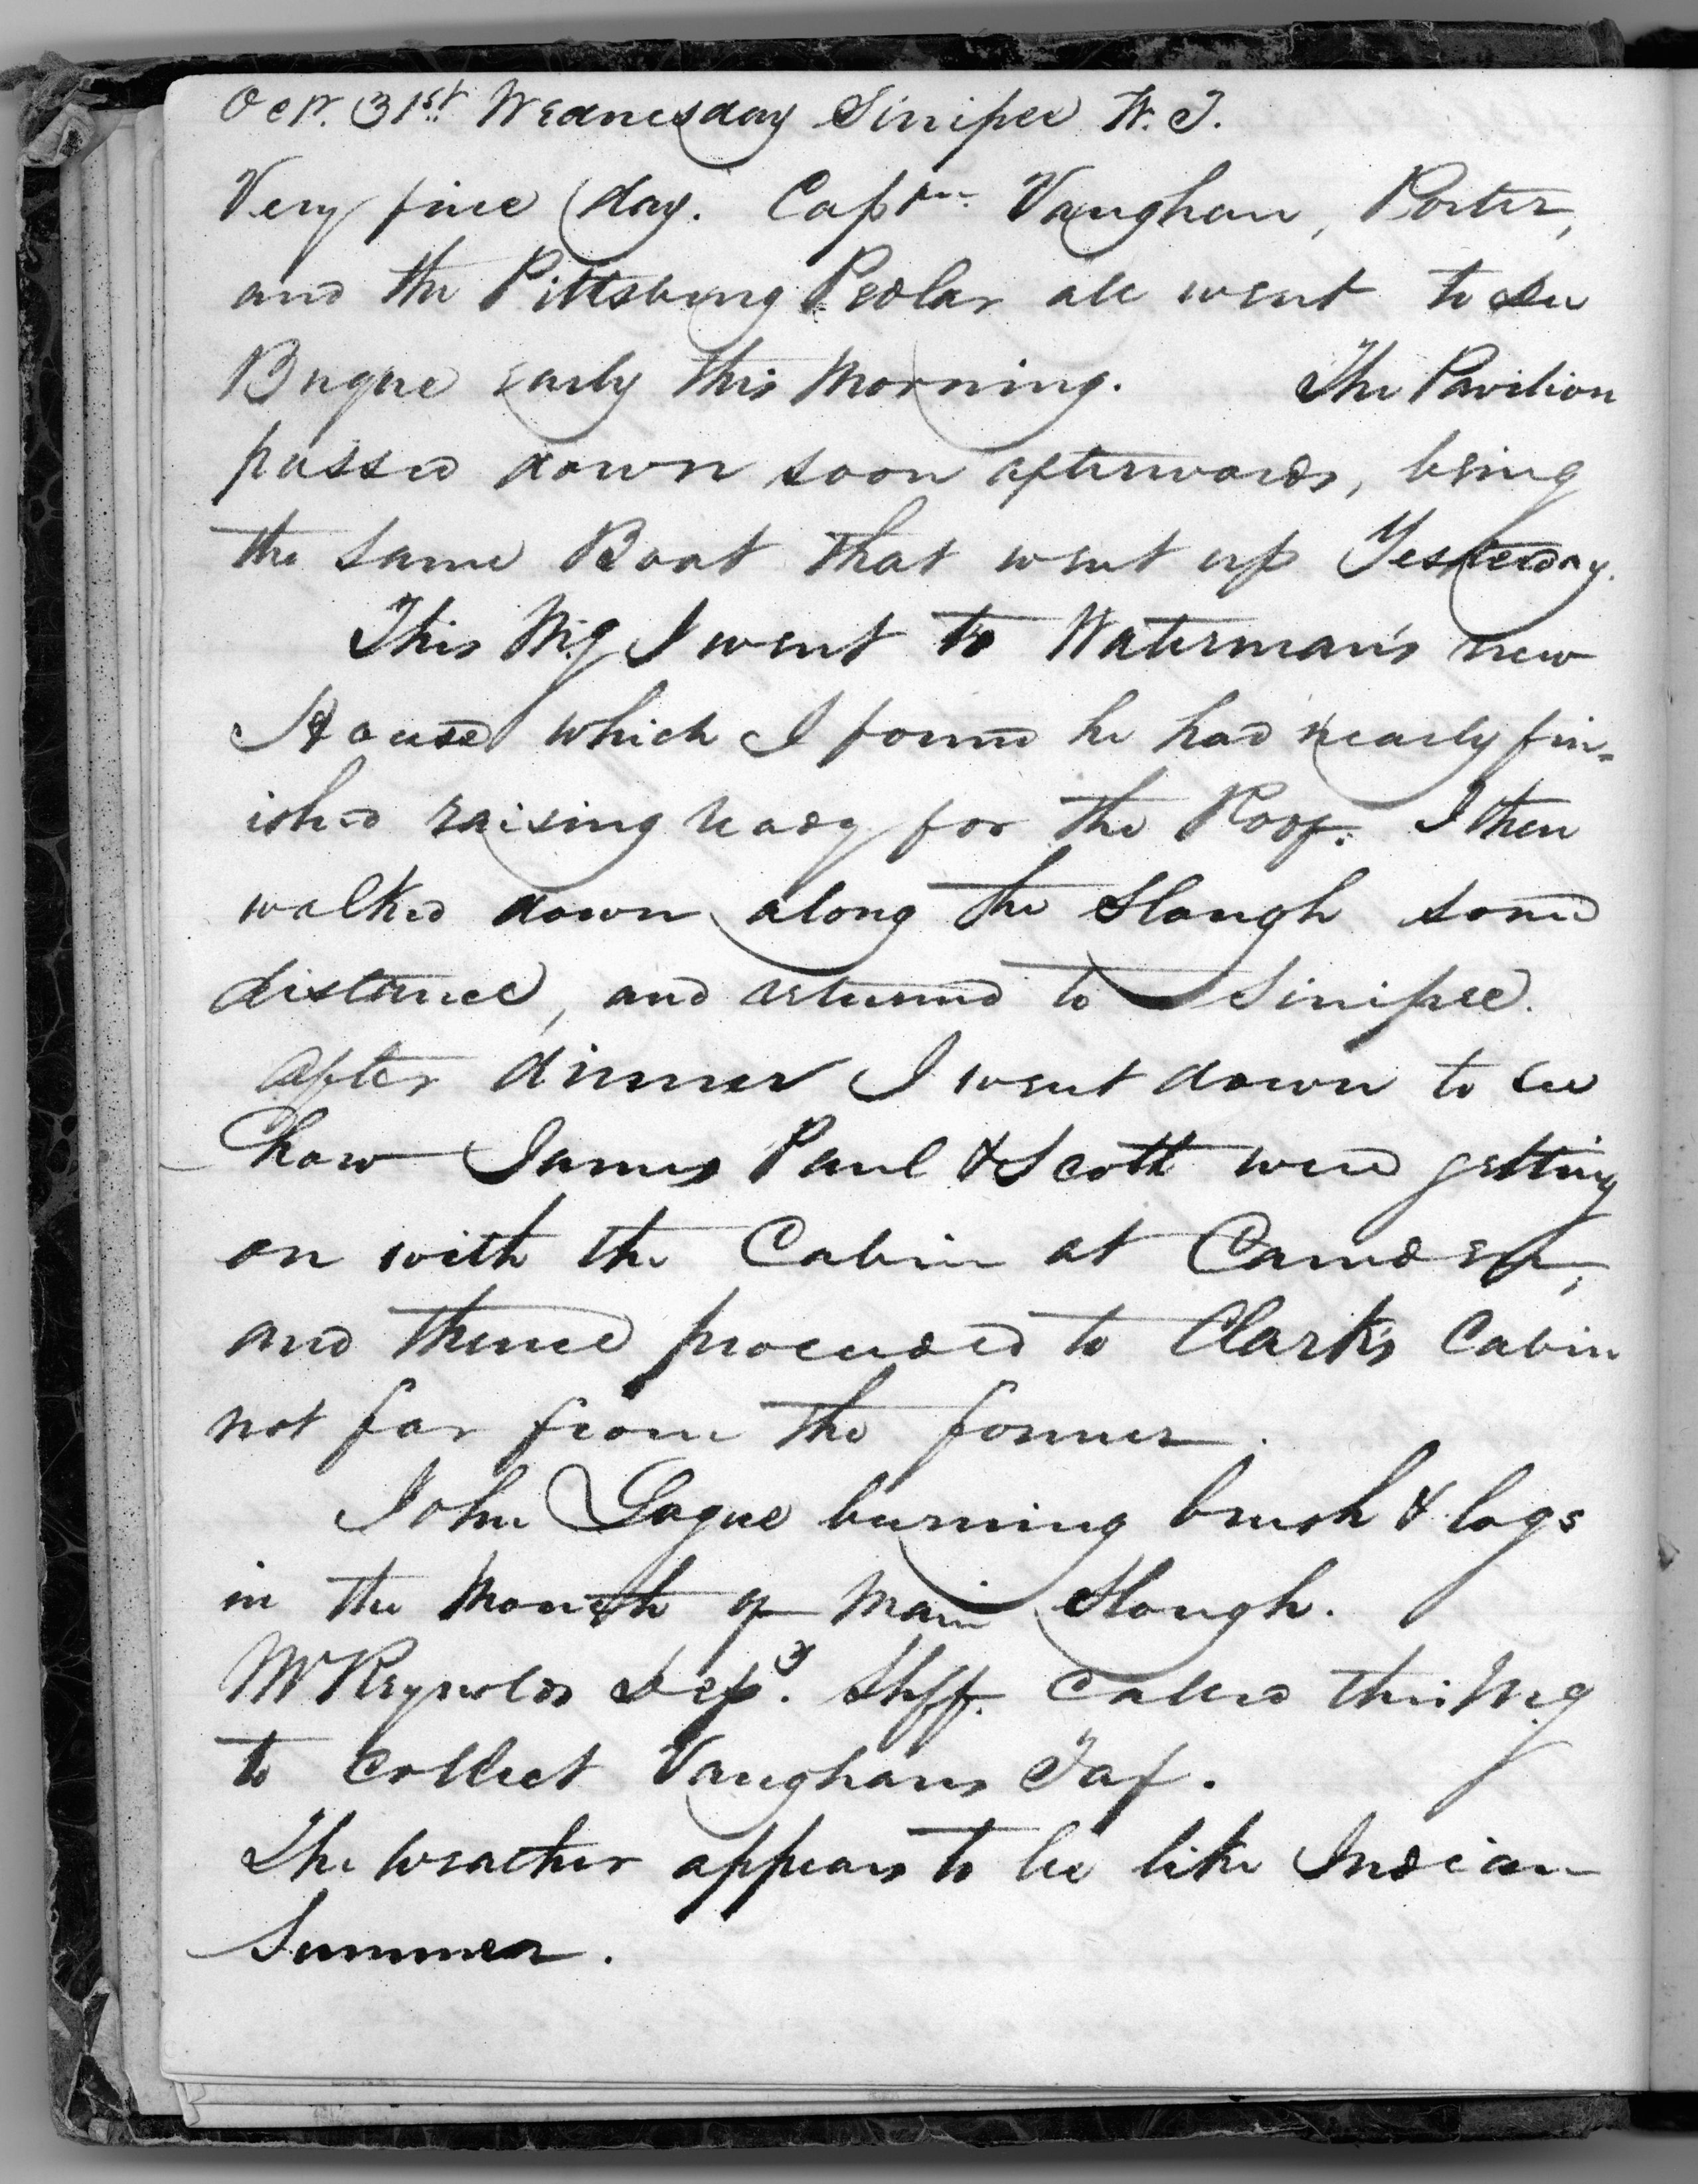 Oct. 31st Wednesday Sinipee W. T.
Very fine day. Captn. Vaughan, Porter,
and the Pittsburg Pedlar all went to Du
Buque early this Morning. The Pavilion
passed down soon afterwards, being
the same Boat that went up Yesterday.
This Mg I went to Waterman's new
House which I found he had nearly fin-
ished raising ready for the Roof. I then
walked down along the Slough some
distance, and returned to Sinipee.
After dinner I went down to see
how James Paul & Scott were getting
on with the Cabin at Camden,
and thence proceeded to Clark's Cabin
not far from the former.
John Logue burning brush & logs
in the Mouth of Main Slough.
McReynolds Depy. Shff. called this Mg
to collect Vaughans Tax.
The weather appears to be like Indian
Summer.